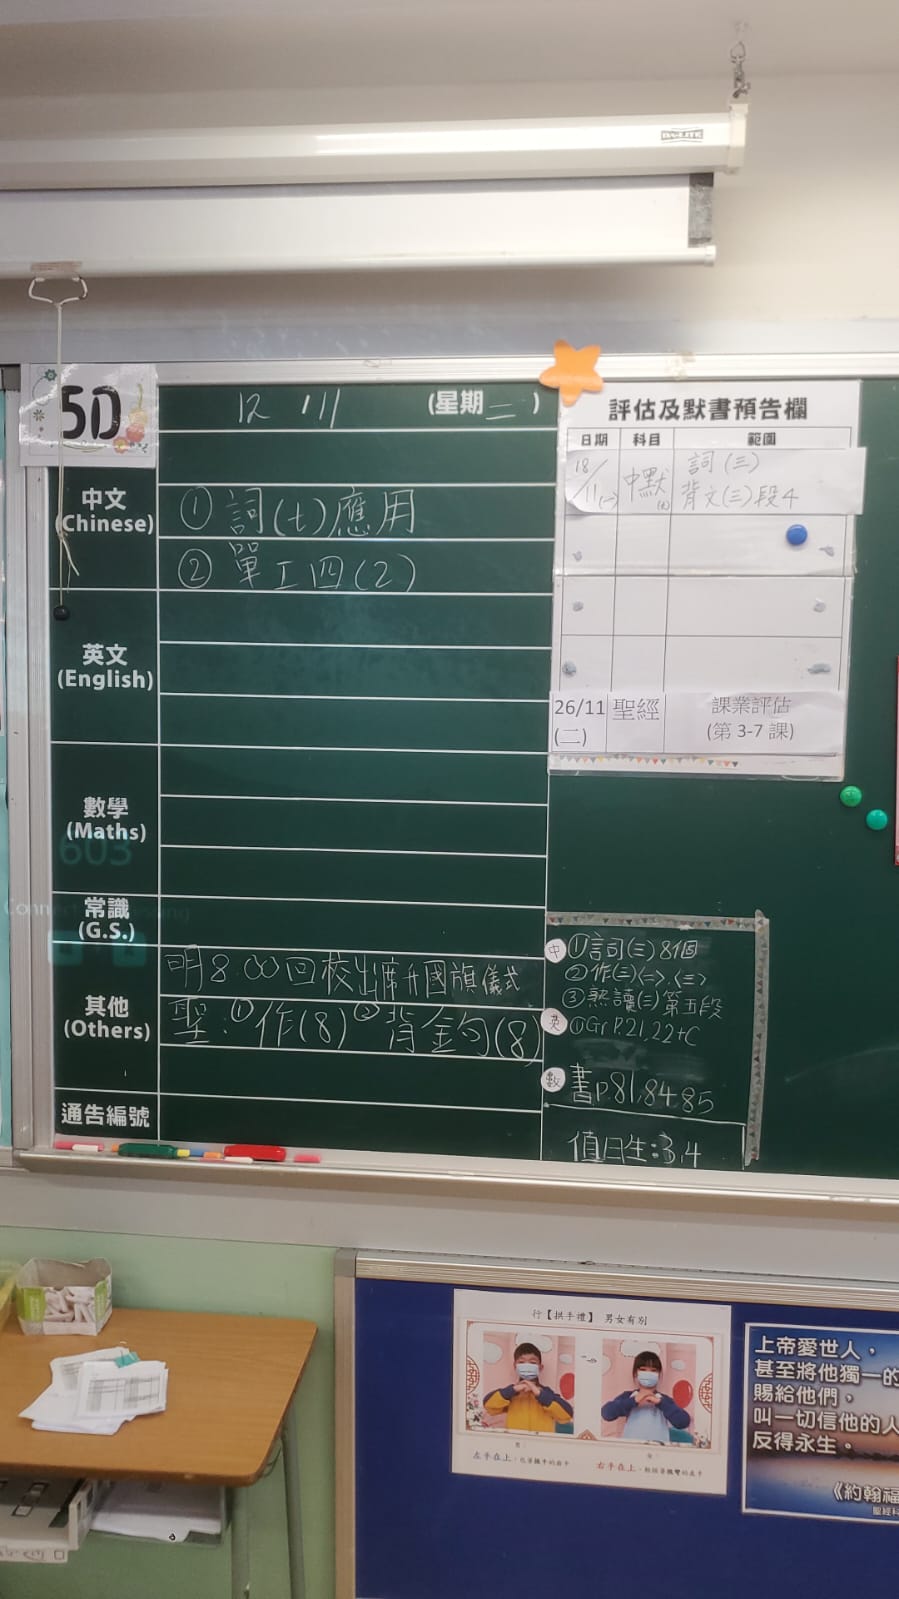 DA-LITE
5D
12 /11 (星期二)
中文
(Chinese)
① 詞(七)應用
② 單工四(2)
英文
(English)
數學
(Maths)
603
常識
(G.S.)
其他
(Others)
明8:00回校出席升國旗儀式
聖:①作(8) ②背金句(8)
通告編號
評估及默書預告欄
日期 科目 範圍
18/11(一) 中默 詞(三)
背文(三)段4
26/11 聖經 課業評估
(二) (第 3-7 課)
中 ①詞(三)8個
②作(三)<二>.<三>
③熟讀(三)第五段
英 ①Gr P.21,22+C
數 書p.81,84,85
值日生:3,4
行【拱手禮】 男女有別
左手在上,
右手在上,
上帝愛世人,
甚至將他獨一的
賜給他們,
叫一切信他的人
反得永生。
《約翰福
聖經科